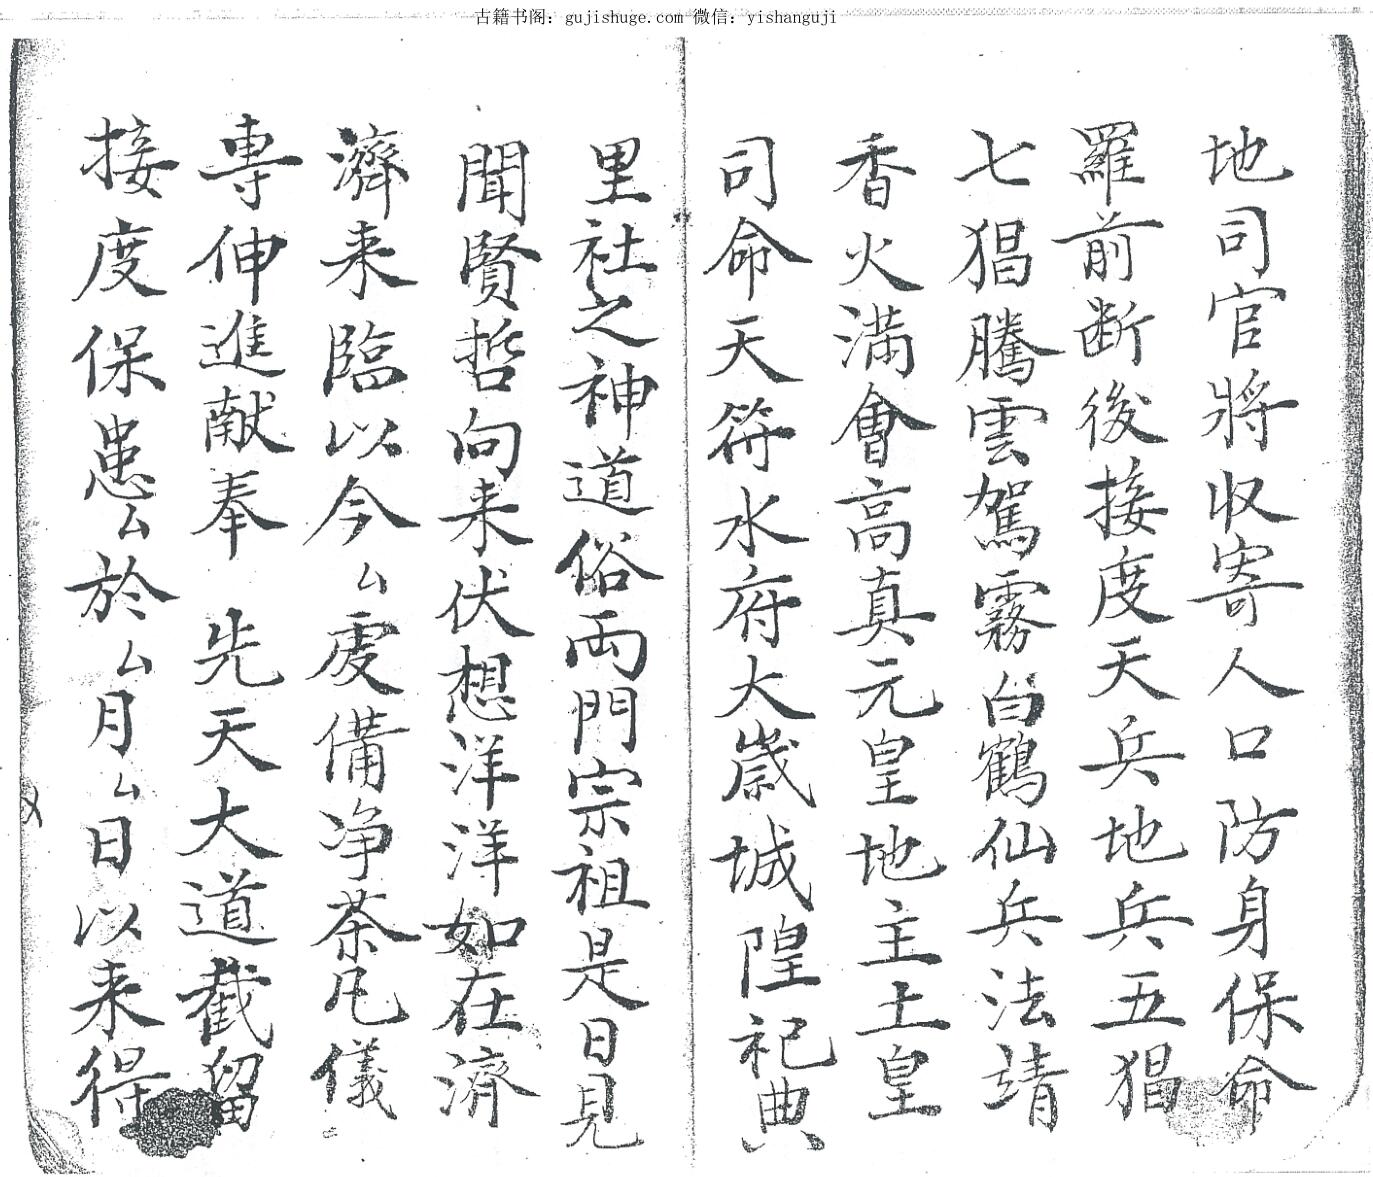 古籍书阁：gujishuge.com 微信：yishanguji
地司官將収寄人口防身保命
羅前断後接度天兵地兵五猖
七猖騰雲駕霧白鶴仙兵法靖
香火满會高真元皇地主土皇
司命天符水府大歲城隍祀典
里社之神道俗両門宗祖是日見
聞賢哲向来伏想洋洋如在濟
濟来臨以今厶處備净茶凡儀
專伸進献奉 先天大道截留
接度保患厶於厶月厶日以来得